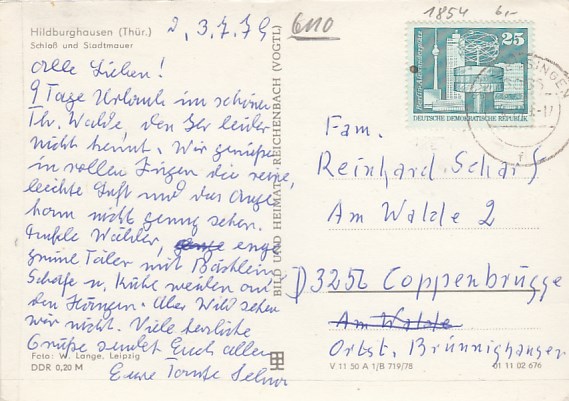 Hildburghausen (Thür.)
Schloß und Stadtmauer
2.3.7.79
6110
1854 6,-
Alle Lieben!
9 Tage Urlaub im schönen
Th. Walde, den Ihr leider
nicht kennt. Wir genießen
in vollen Zügen die reine,
leichte Luft und das Auge
kann nicht genug sehen.
Dunkle Wälder, enge
grüne Täler mit Bächlein
Schafe u. Kühe weiden an
den Hängen. Aber Wild sehen
wir nicht. Viele herzliche
Grüße sendet Euch allen
Eure Tante Selma
Foto: W. Lange, Leipzig
DDR 0,20 M
BILD UND HEIMAT REICHENBACH (VOGTL)
25
DEUTSCHE DEMOKRATISCHE REPUBLIK
Fam.
Reinhard Scharf
Am Walde 2
D 3256 Coppenbrügge
Am Walde
Ortst. Brünnighausen
V 11 50 A 1/B 719/78
01 11 02 676